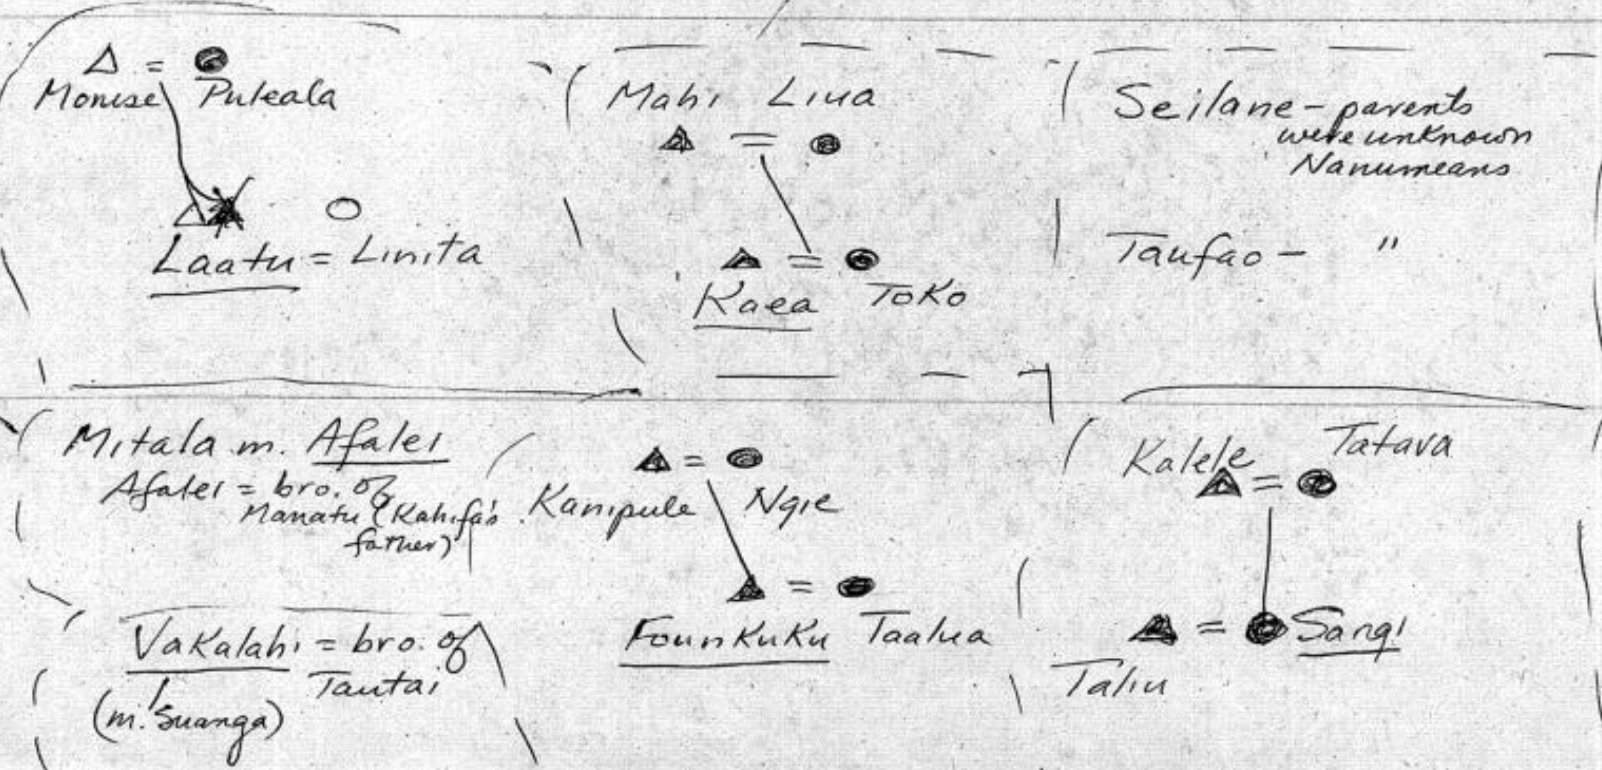 = 
Monise Puleala
Laatu = Linita
Mahi Liua
=
=
Kaea Toko
Seilane - parents
were unknown
Nanumeans
Taufao - "
Mitala m. Afalei
Afalei = bro. of
Manatu (Kahifa's
father)
Vakalahi = bro. of
Tautai
(m. Suanga)
=
Kanipule Ngie
=
Founkuku Taalua
Kalele Tatava
=
= Sangi
Taliu